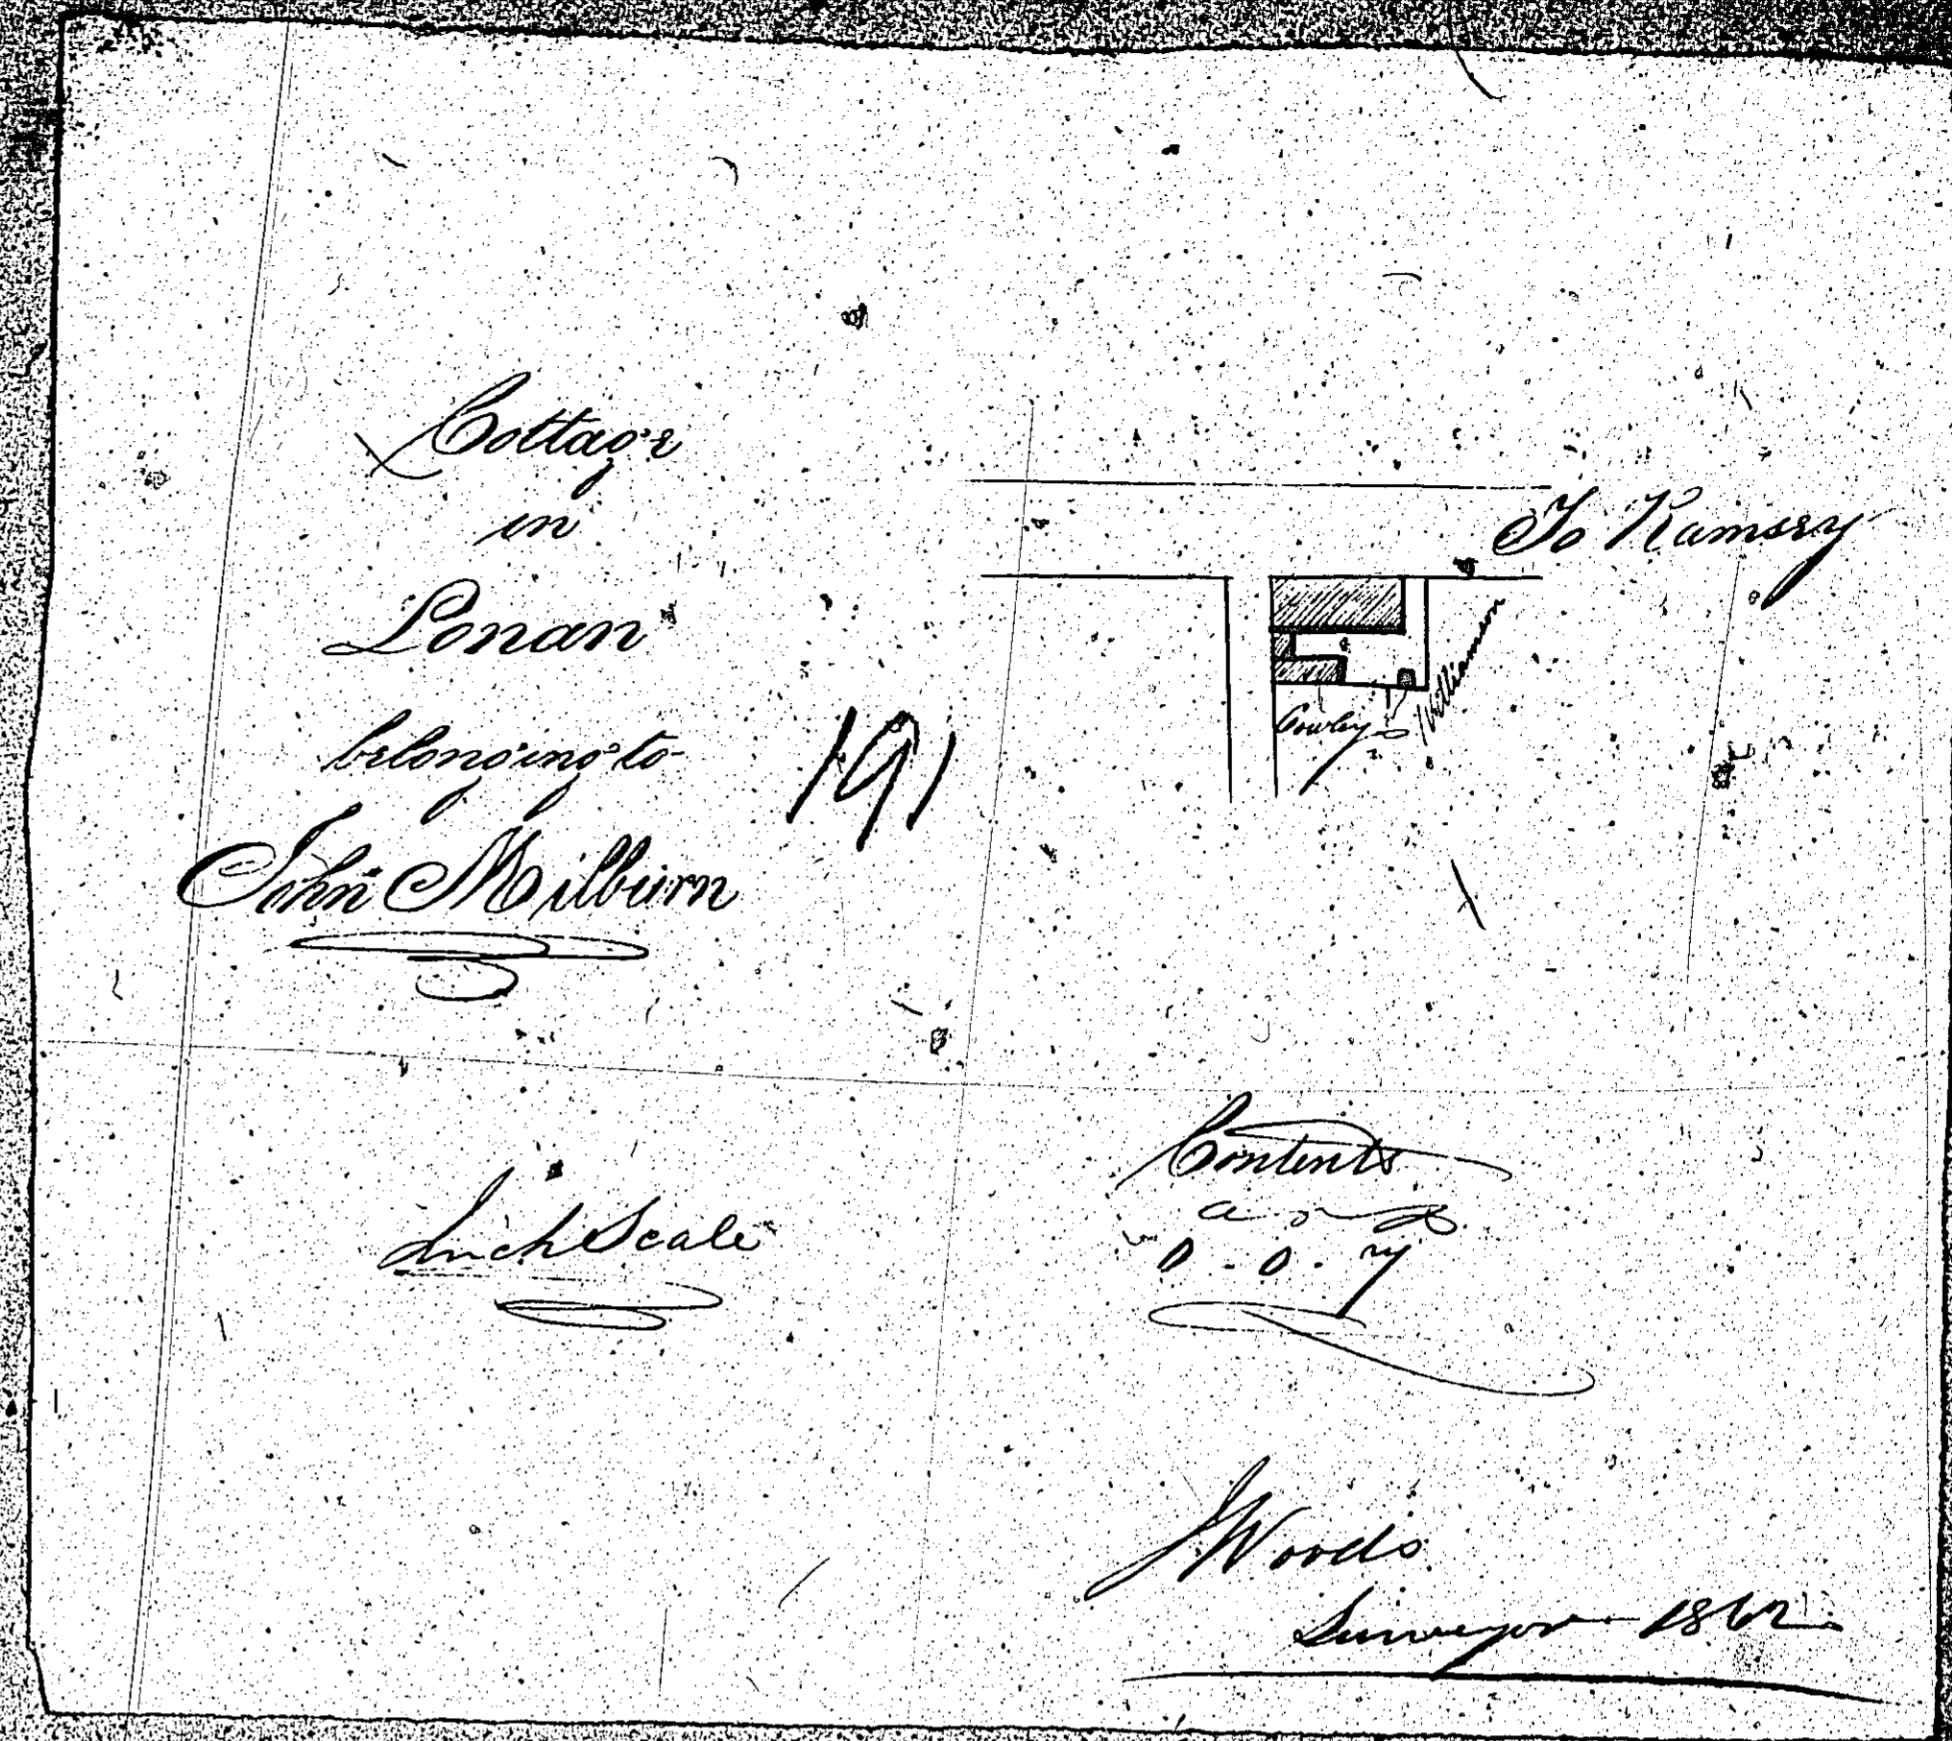 Cottage
in
Lonan
belonging to
John Milburn
191
To Ramsey
Williamson
Cowley
Inch Scale
Contents
a . r . p
0 . 0 . 7
J Woods
Surveyor 1862